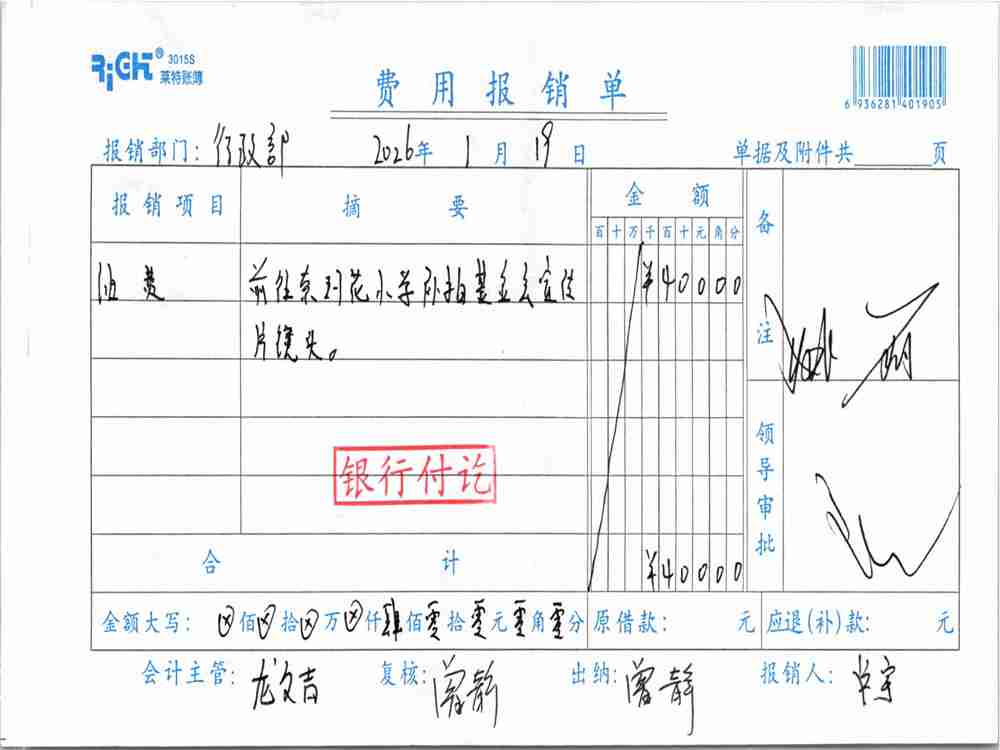 RiGHT® 3015S
莱特账簿
费用报销单
6 936281 401905
报销部门: 行政部 2026年 1月 19日 单据及附件共 页
报销项目 摘要 金额 备注
百十万千百十元角分
油费 前往东川花小学孙拍基金会宣传 ¥40000
片镜头。
领导审批
银行付讫
合计 ¥40000
金额大写: ⊗佰⊗拾⊗万⊗仟肆佰零拾零元零角零分 原借款: 元 应退(补)款: 元
会计主管: 龙文吉 复核: 曾静 出纳: 曾静 报销人: 宇